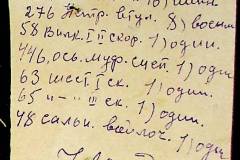 276 Пстр. втул. 8) восем
58 Вилк. I II скор. 1) один.
446, ось. муф. сцеп. 1) один.
63 шест I ск. 1) один.
65 –"– III ск. 1) один.
48 сальн. войлоч. 1) один